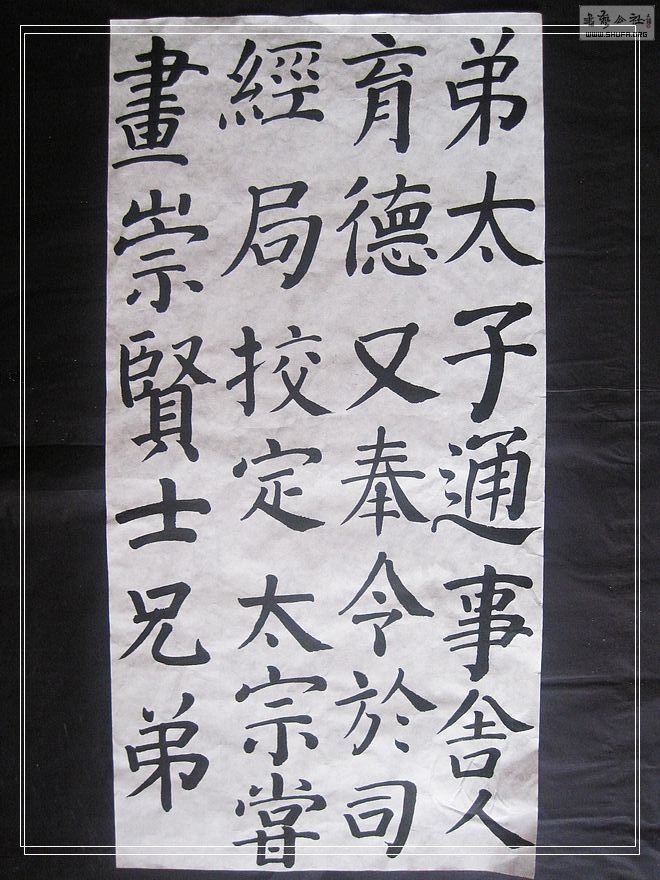 弟太子通事舎人
育德又奉令於司
經局挍定太宗甞
畫崇賢士兄弟
WWW.SHUFA.ORG